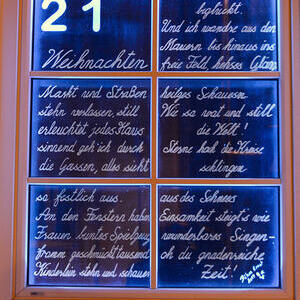 21
Weihnachten
Markt und Straßen
stehn verlassen, still
erleuchtet jedes Haus
sinnend geh'ich durch
die Gassen, alles sieht
so festlich aus.
An den Fenstern haben
Frauen buntes Spielzeug
fromm geschmückt, tausend
Kindlein stehn und schauen
beglückt.
Und ich wandre aus den
Mauern bis hinaus ins
freie Feld, hehres Glänzen
heilges Schauern.
Wie so weit und still
die Welt!
Sterne hoch die Kreise
schlingen
aus des Schnees
Einsamkeit steigt's wie
wunderbares Singen-
oh du gnadenreiche
Zeit!